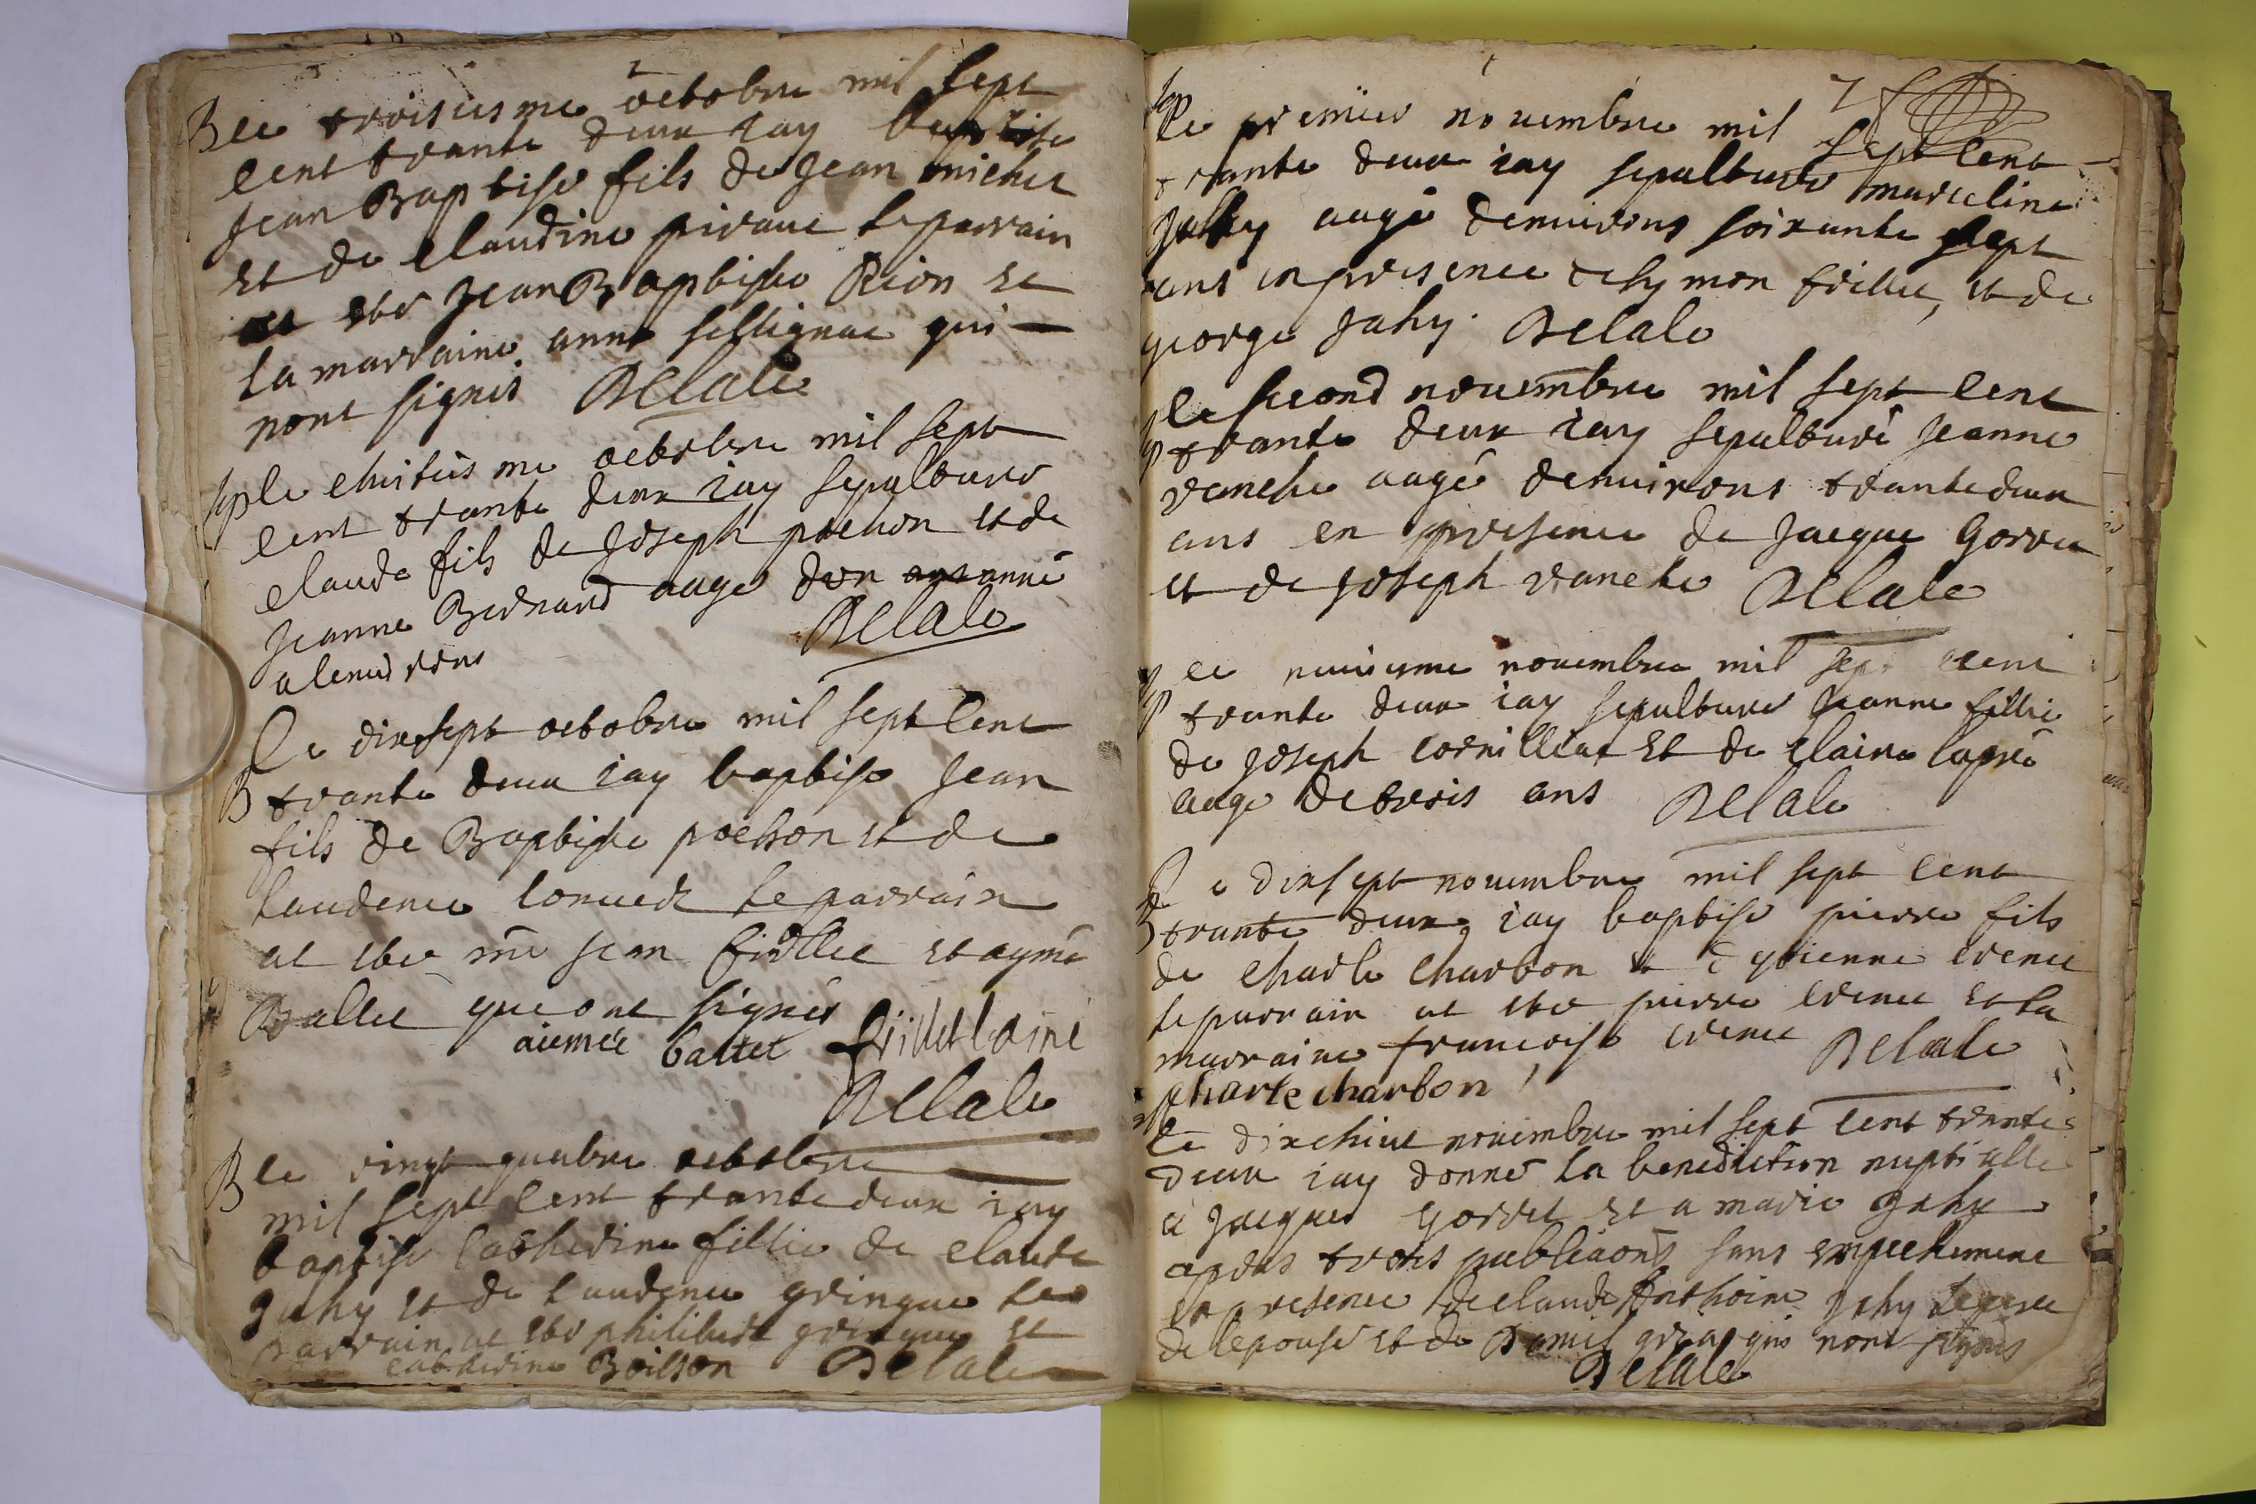 B le troisiesme octobre mil sept
cent trante deux iay baptise
Jean Baptise fils de Jean michet
et de claudine piraut le parrain
at etes Jean Baptiste Rion et
la marraine anne sellignat qui
nont signes Delale
sp le chuitiesme octobre mil sept
cent trante deux iay sepultures
claude fils de Joseph pochon et de
Jeanne Bernard auge dun anné
alenuirons Delale
Le dixsept octobre mil sept cent
B trante deux iay baptise Jean
fils de Baptiste pochon et de
laudence conuert le parrain
at etes me Jean frillet et aymé
Ballet que ont signés
aiemée ballet frillet lainé
Delale
B le vingt quatre octobre
mil sept cent trante deux iay
baptise Catherine fillie de claude
Jahy et de laudence gringue le
parrain at etes philibert gringue et
catherine Boilson Delale
sp le premier nouembre mil sept cent
trante deux iay sepultures marceline
Jahy augé denuirons soixante sept
ans en presence de sy mon frillet, et de
george Jahy. Delale
le second nouembre mil sept cent
sp trante deux iay sepulturé Jeanne
vanche augé denuirons trante deux
ans en presence de Jacque Gorret
et de Joseph vanche Delale
le nuiesme nouembre mil sept cent
sp trante deux iay sepultures Jeanne fillie
de Joseph cornilliat et de claine
auge de trois ans Delale
Le dixsept nouembre mil sept cent
B trante deux iay baptise pierre fils
de charle charbon et d ytienne
le parrain at etes pierre et la
marraine francoise Delale
charle charbon
le dixchiut nouembre mil sept cent trante
deux iay donné la benediction nuptialle
a Jacques Gorret et a marie Jahy
apres trois publicaons sans empechement
en presence de claude Anthoine Jahy le pere
de lepouse et de qui nont signés
Delale